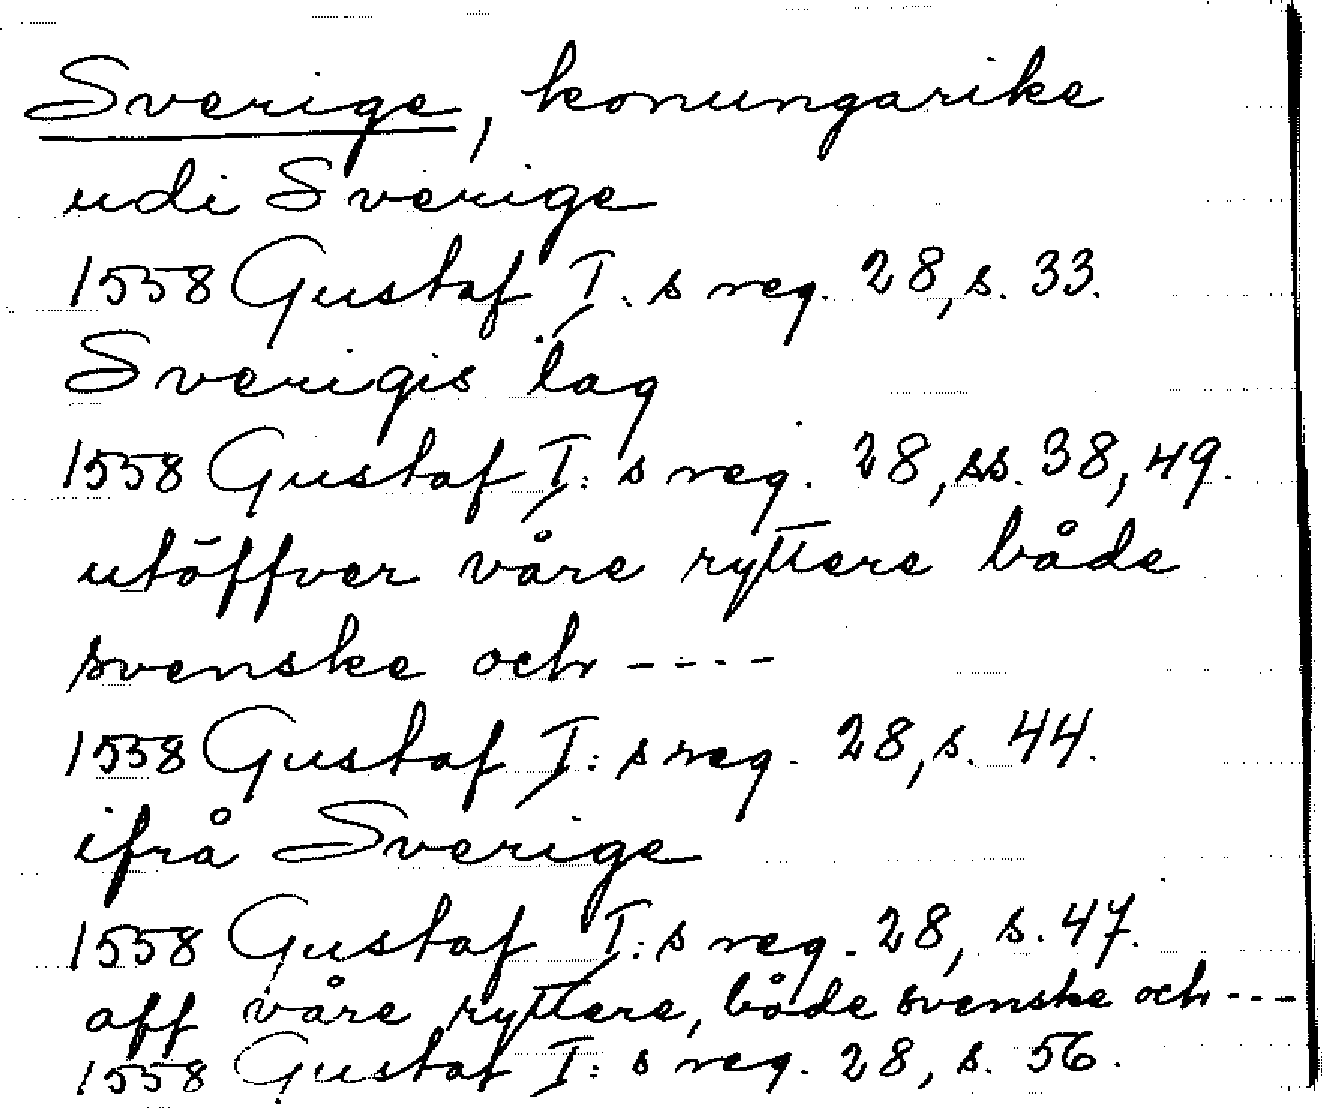 Sverige, konungarike
udi Sverige
1558 Gustaf I:s reg. 28, s. 33.
Sverigis lag
1558 Gustaf I:s reg. 28, ss. 38, 49.
utöffver våre ryttere både
svenske och ----
1558 Gustaf I:s reg. 28, s. 44.
ifrå Sverige
1558 Gustaf I:s reg. 28, s. 47.
aff våre ryttere, både svenske och ---
1558 Gustaf I:s reg. 28, s. 56.